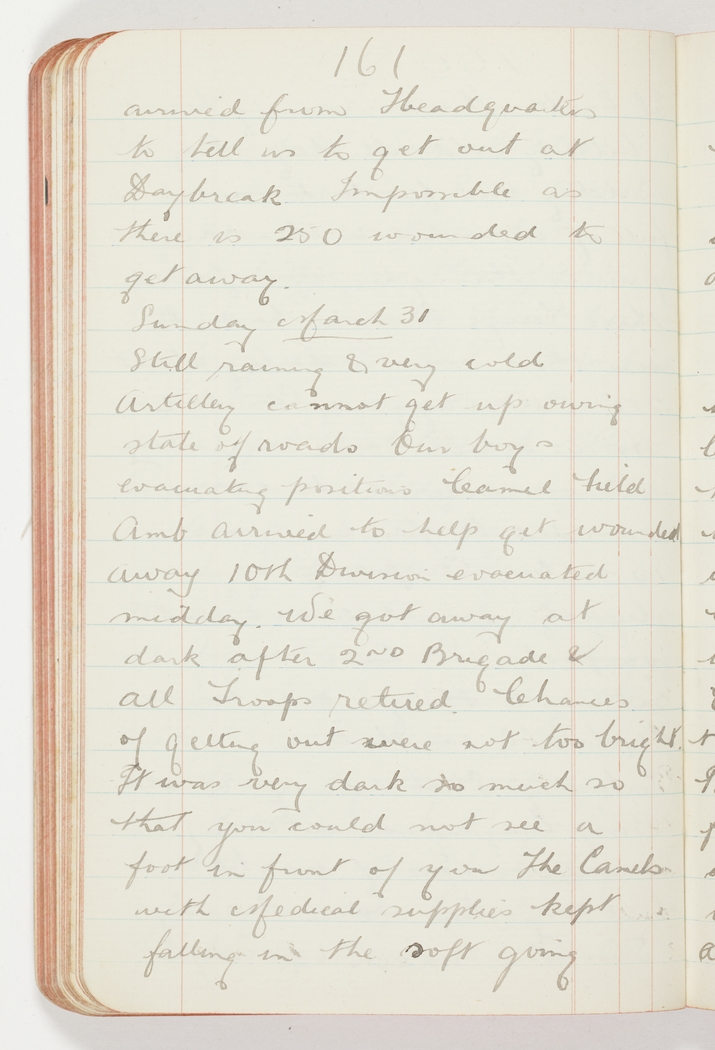 161
arrived from Headquaters
to tell us to get out at
Daybreak. Impossible as
there is 250 wounded to
get away.
Sunday March 31
Still raining & very cold
Artillery cannot get up owing
state of roads Our boys
evacuating positions Camel Field
Amb arrived to help get wounded
away 10th Division evacuated
midday. We got away at
dark after 2nd Brigade &
all Troops retired. Chances
of getting out were not too bright.
It was very dark so much so
that you could not see a
foot in front of you The Camels
with Medical supplies kept
falling in the soft going